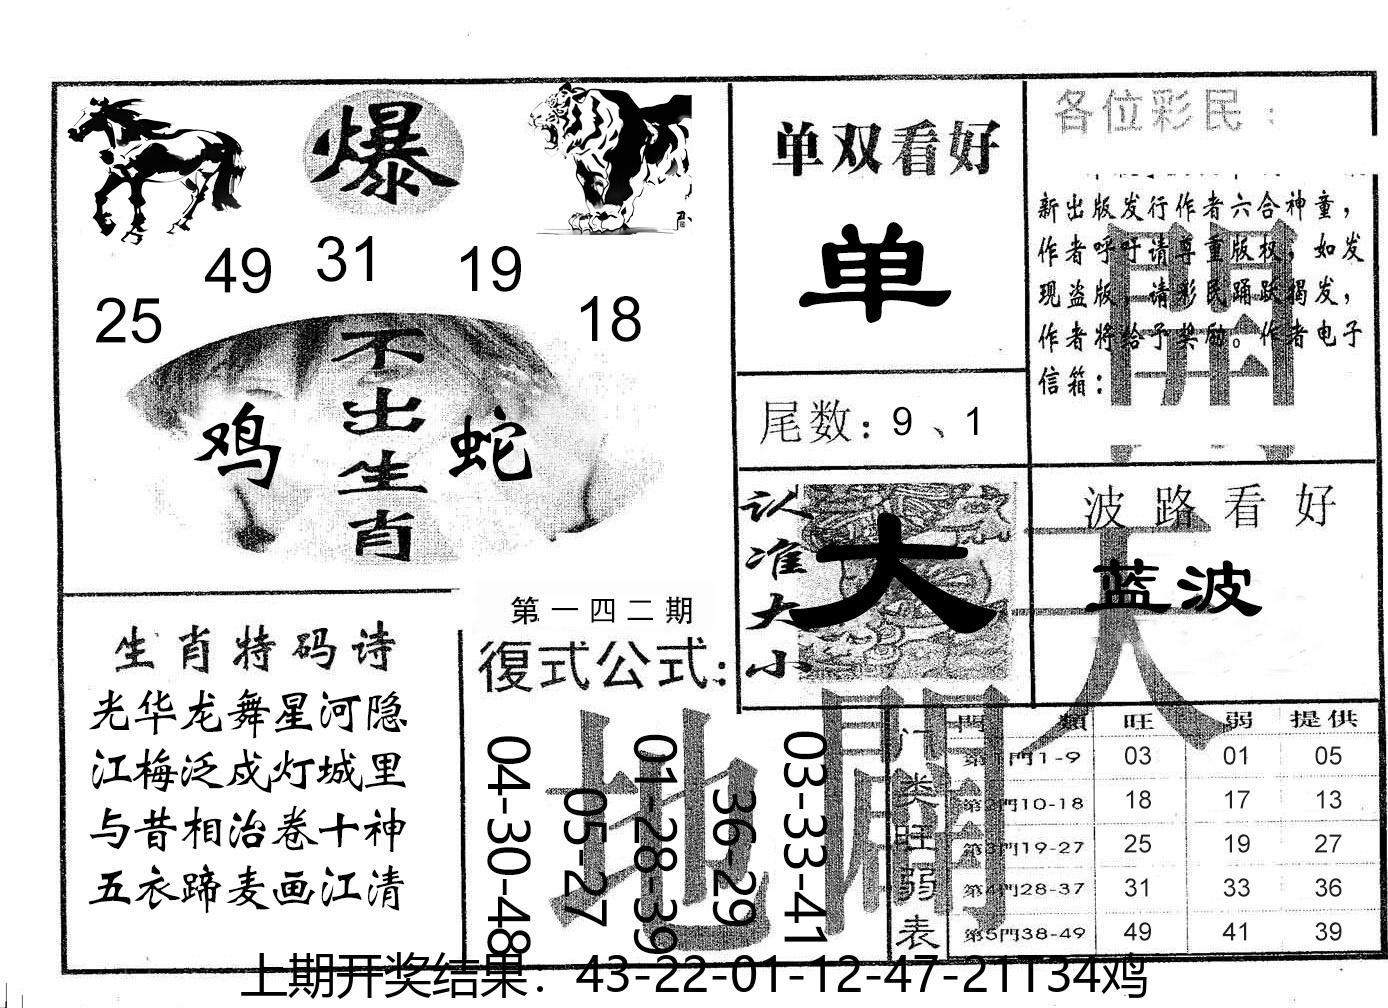 爆
49 31 19
25 18
不出生肖
鸡 蛇
单双看好
单
尾数：9、1
各位彩民：
新出版发行作者六合神童，
作者呼吁请尊重版权，如发
现盗版，请彩民踊跃揭发，
作者将给予奖励。作者电子
信箱：
認准大小
大
波路看好
蓝波
天地
開
開
生肖特码诗
光华龙舞星河隐
江梅泛成灯城里
与昔相治卷十神
五衣蹄麦画江清
第一四二期
復式公式：
04-30-48
05-27
01-28-39
36-29
03-33-41
门类旺弱表
門類 旺 弱 提供
第1門1-9 03 01 05
第2門10-18 18 17 13
第3門19-27 25 19 27
第4門28-37 31 33 36
第5門38-49 49 41 39
上期开奖结果：43-22-01-12-47-21T34鸡